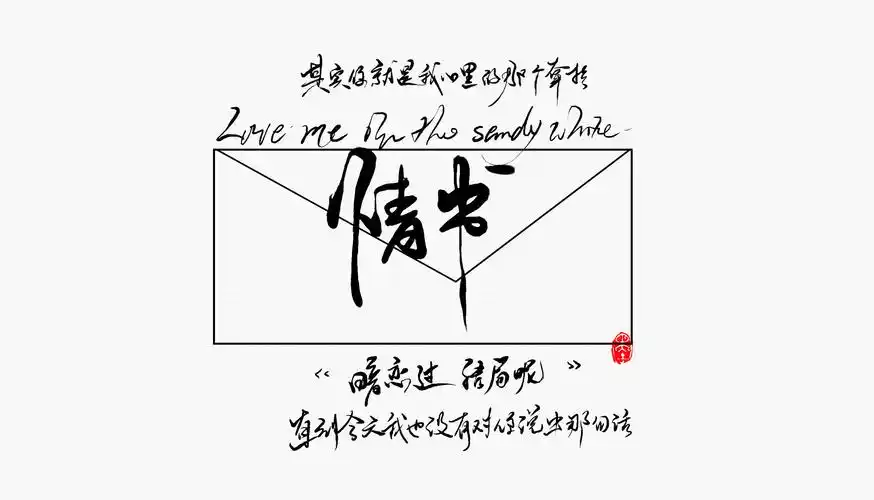 其实你就是我心里的那个牵挂
Love me in the sendy white
情书
“ 暗恋过 结局呢 ”
直到今天我也没有对你说出那句话